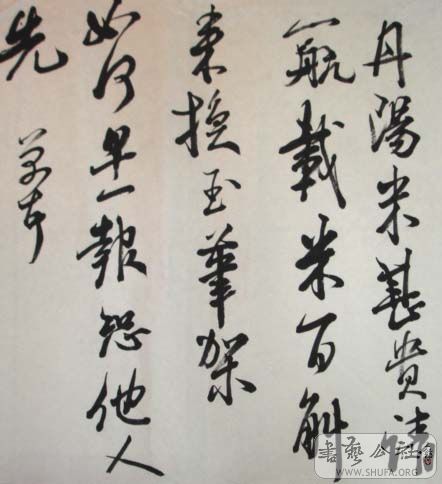 丹陽米甚貴請
一航載米百斛
来換玉筆架
如何早一報恐他人
先
書藝公社
WWW.SHUFA.ORG